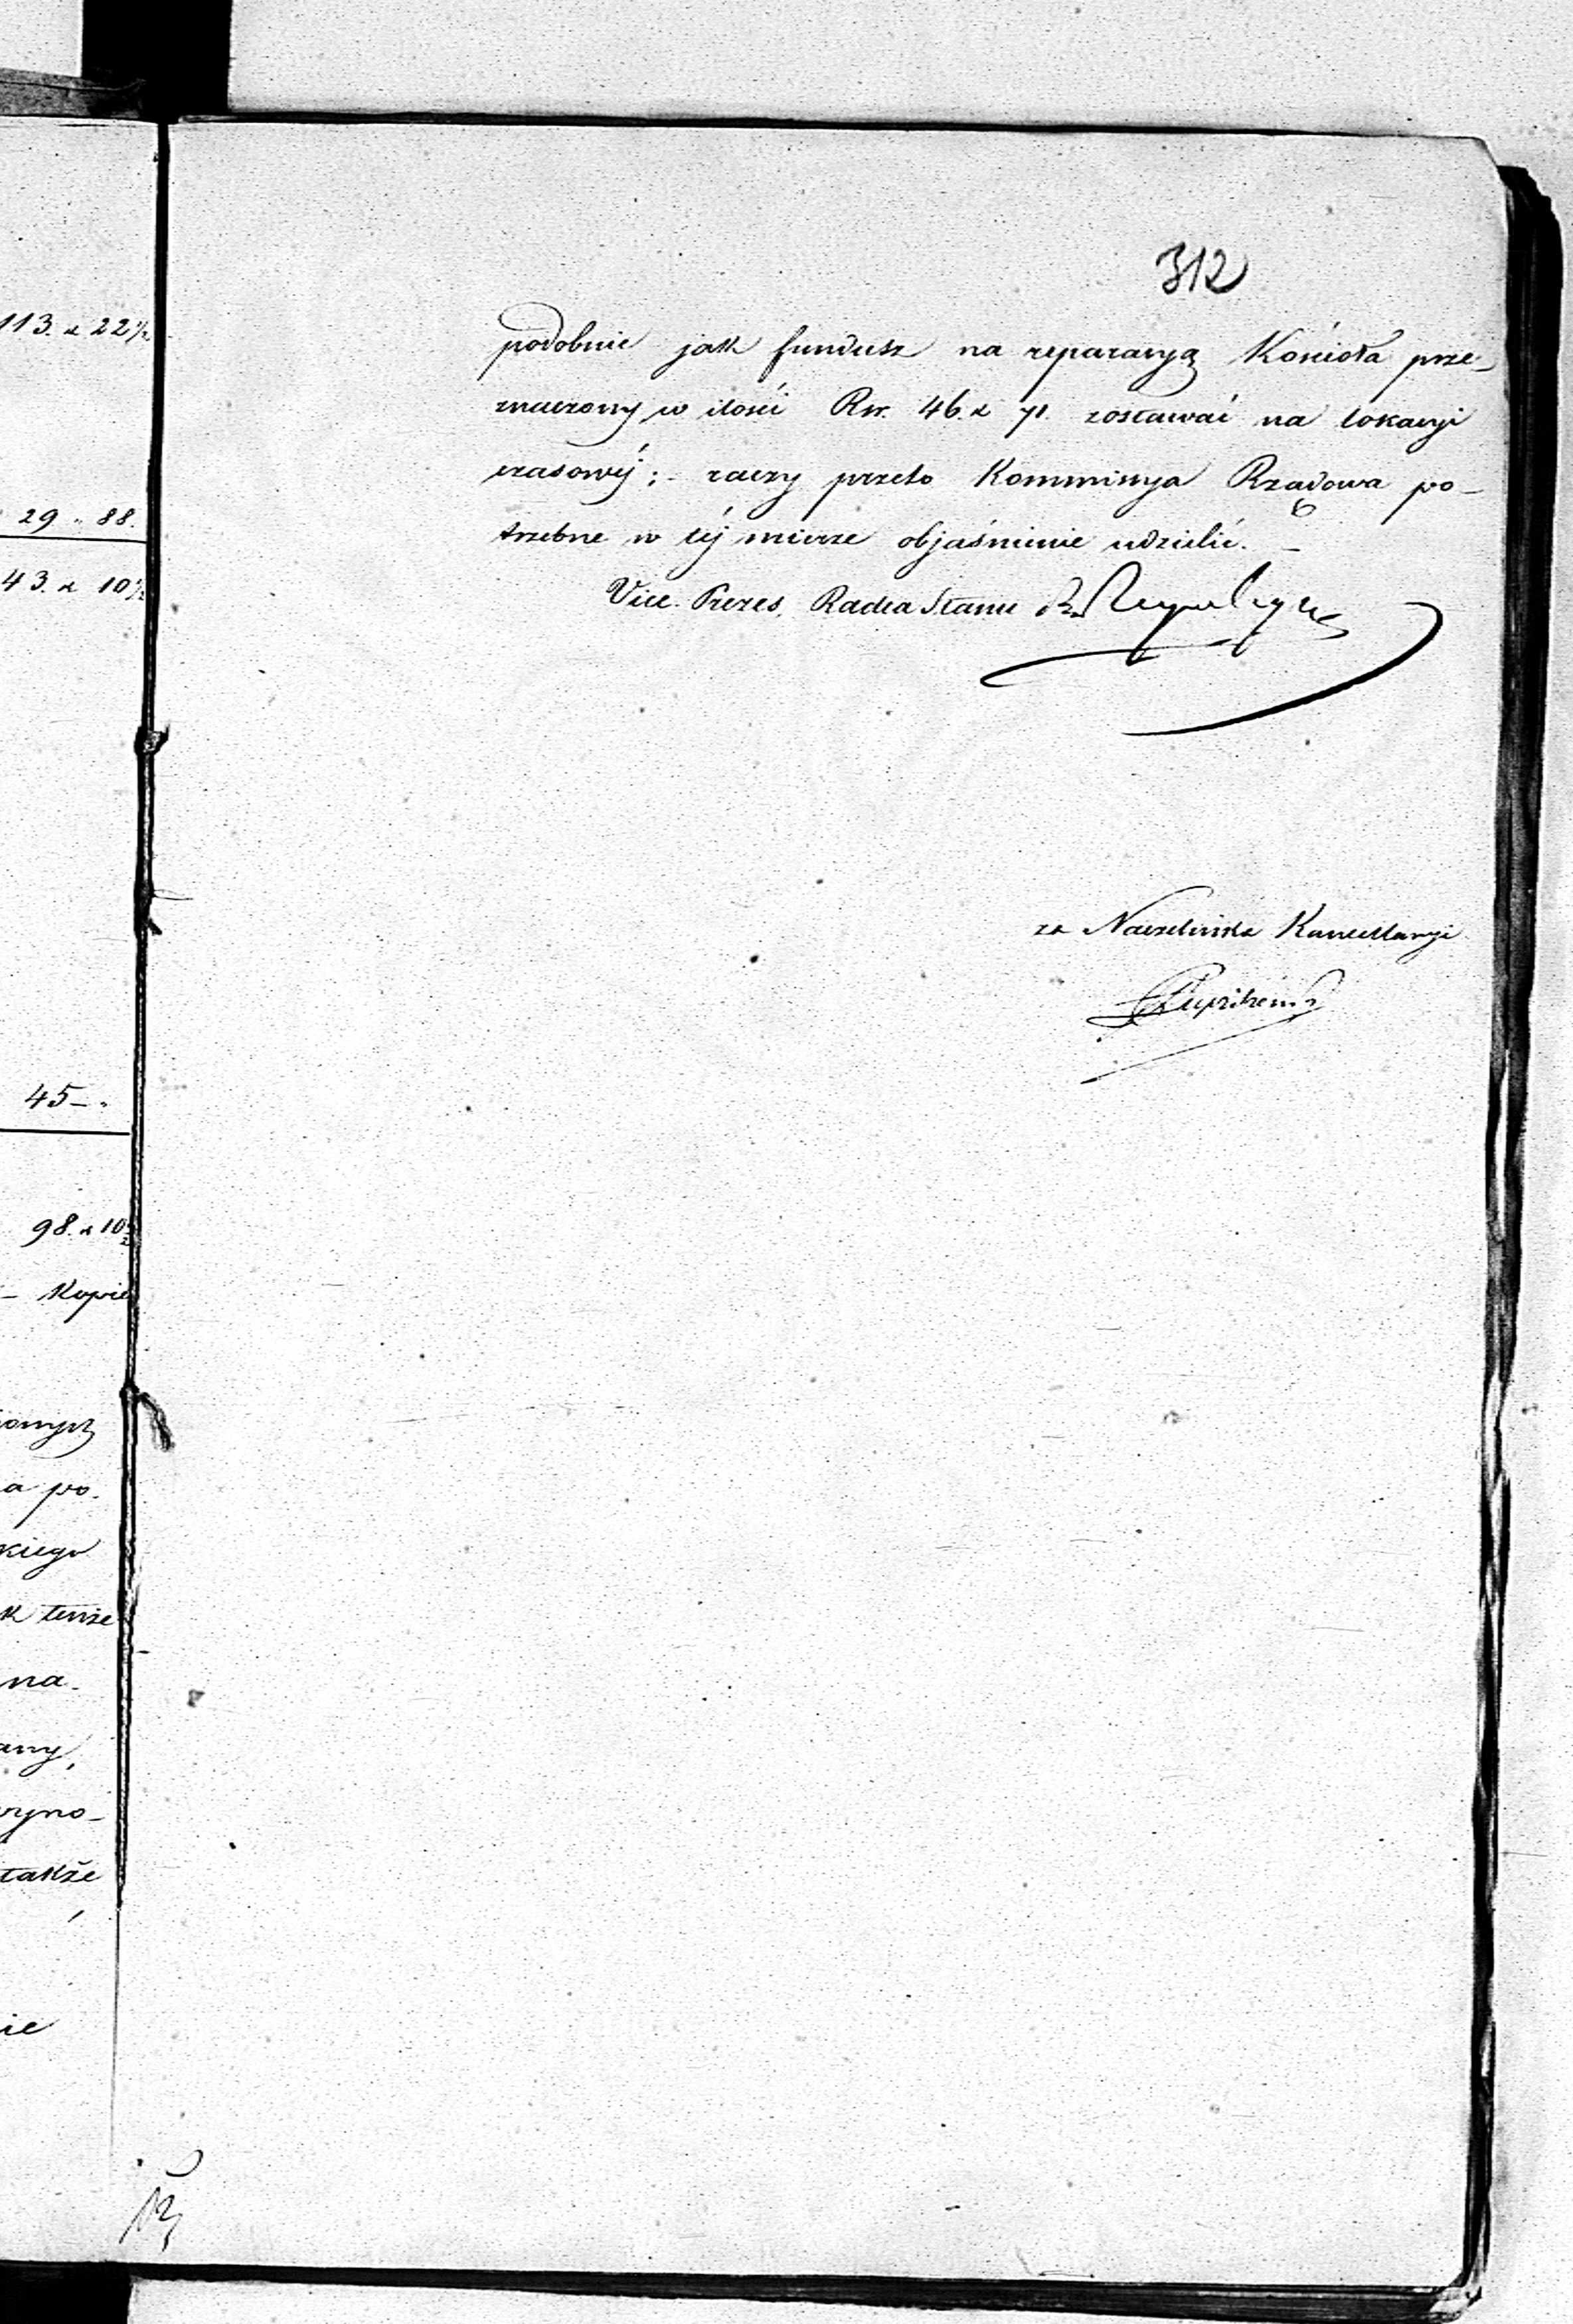 113. k 22½
29 " 88.
43. k 10½
45 - "
98. k 10½
- Kopie
ionych
a po-
kiego
k tenże
na-
any,
czyno-
także
ie
312
podobnie jak fundusz na reparacyą Kościoła prze-
znaczony, w ilości Rsr. 46. k 71. zostawać na lokacyi
czasowéj; - raczy przeto Kommissya Rządowa po-
trzebne w téj mierze objaśnienie udzielić. -
Vice. Prezes, Radca Stanu
za Naczelnika Kancellaryi